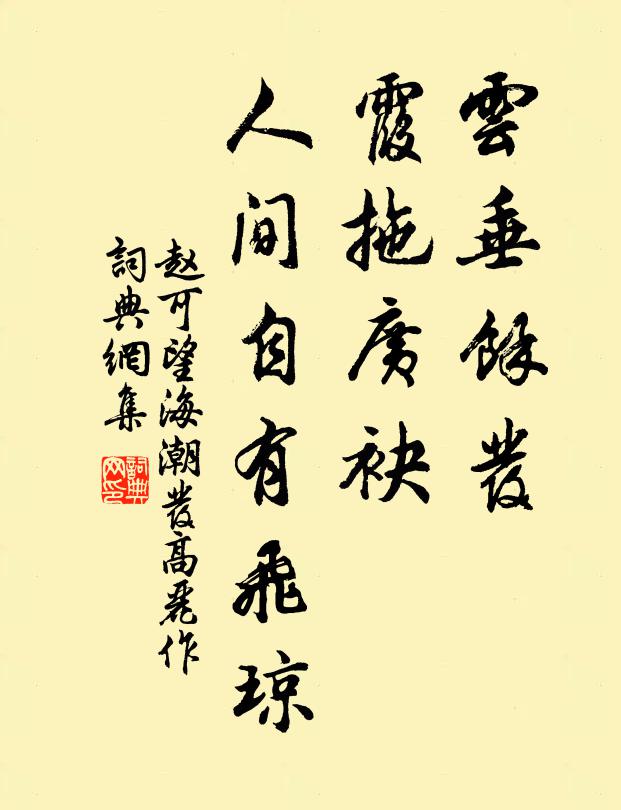 雲垂餘發
霞拖廣袂
人間自有飛瓊
赵可望海潮發高麗作
詞典網集
詞典網印